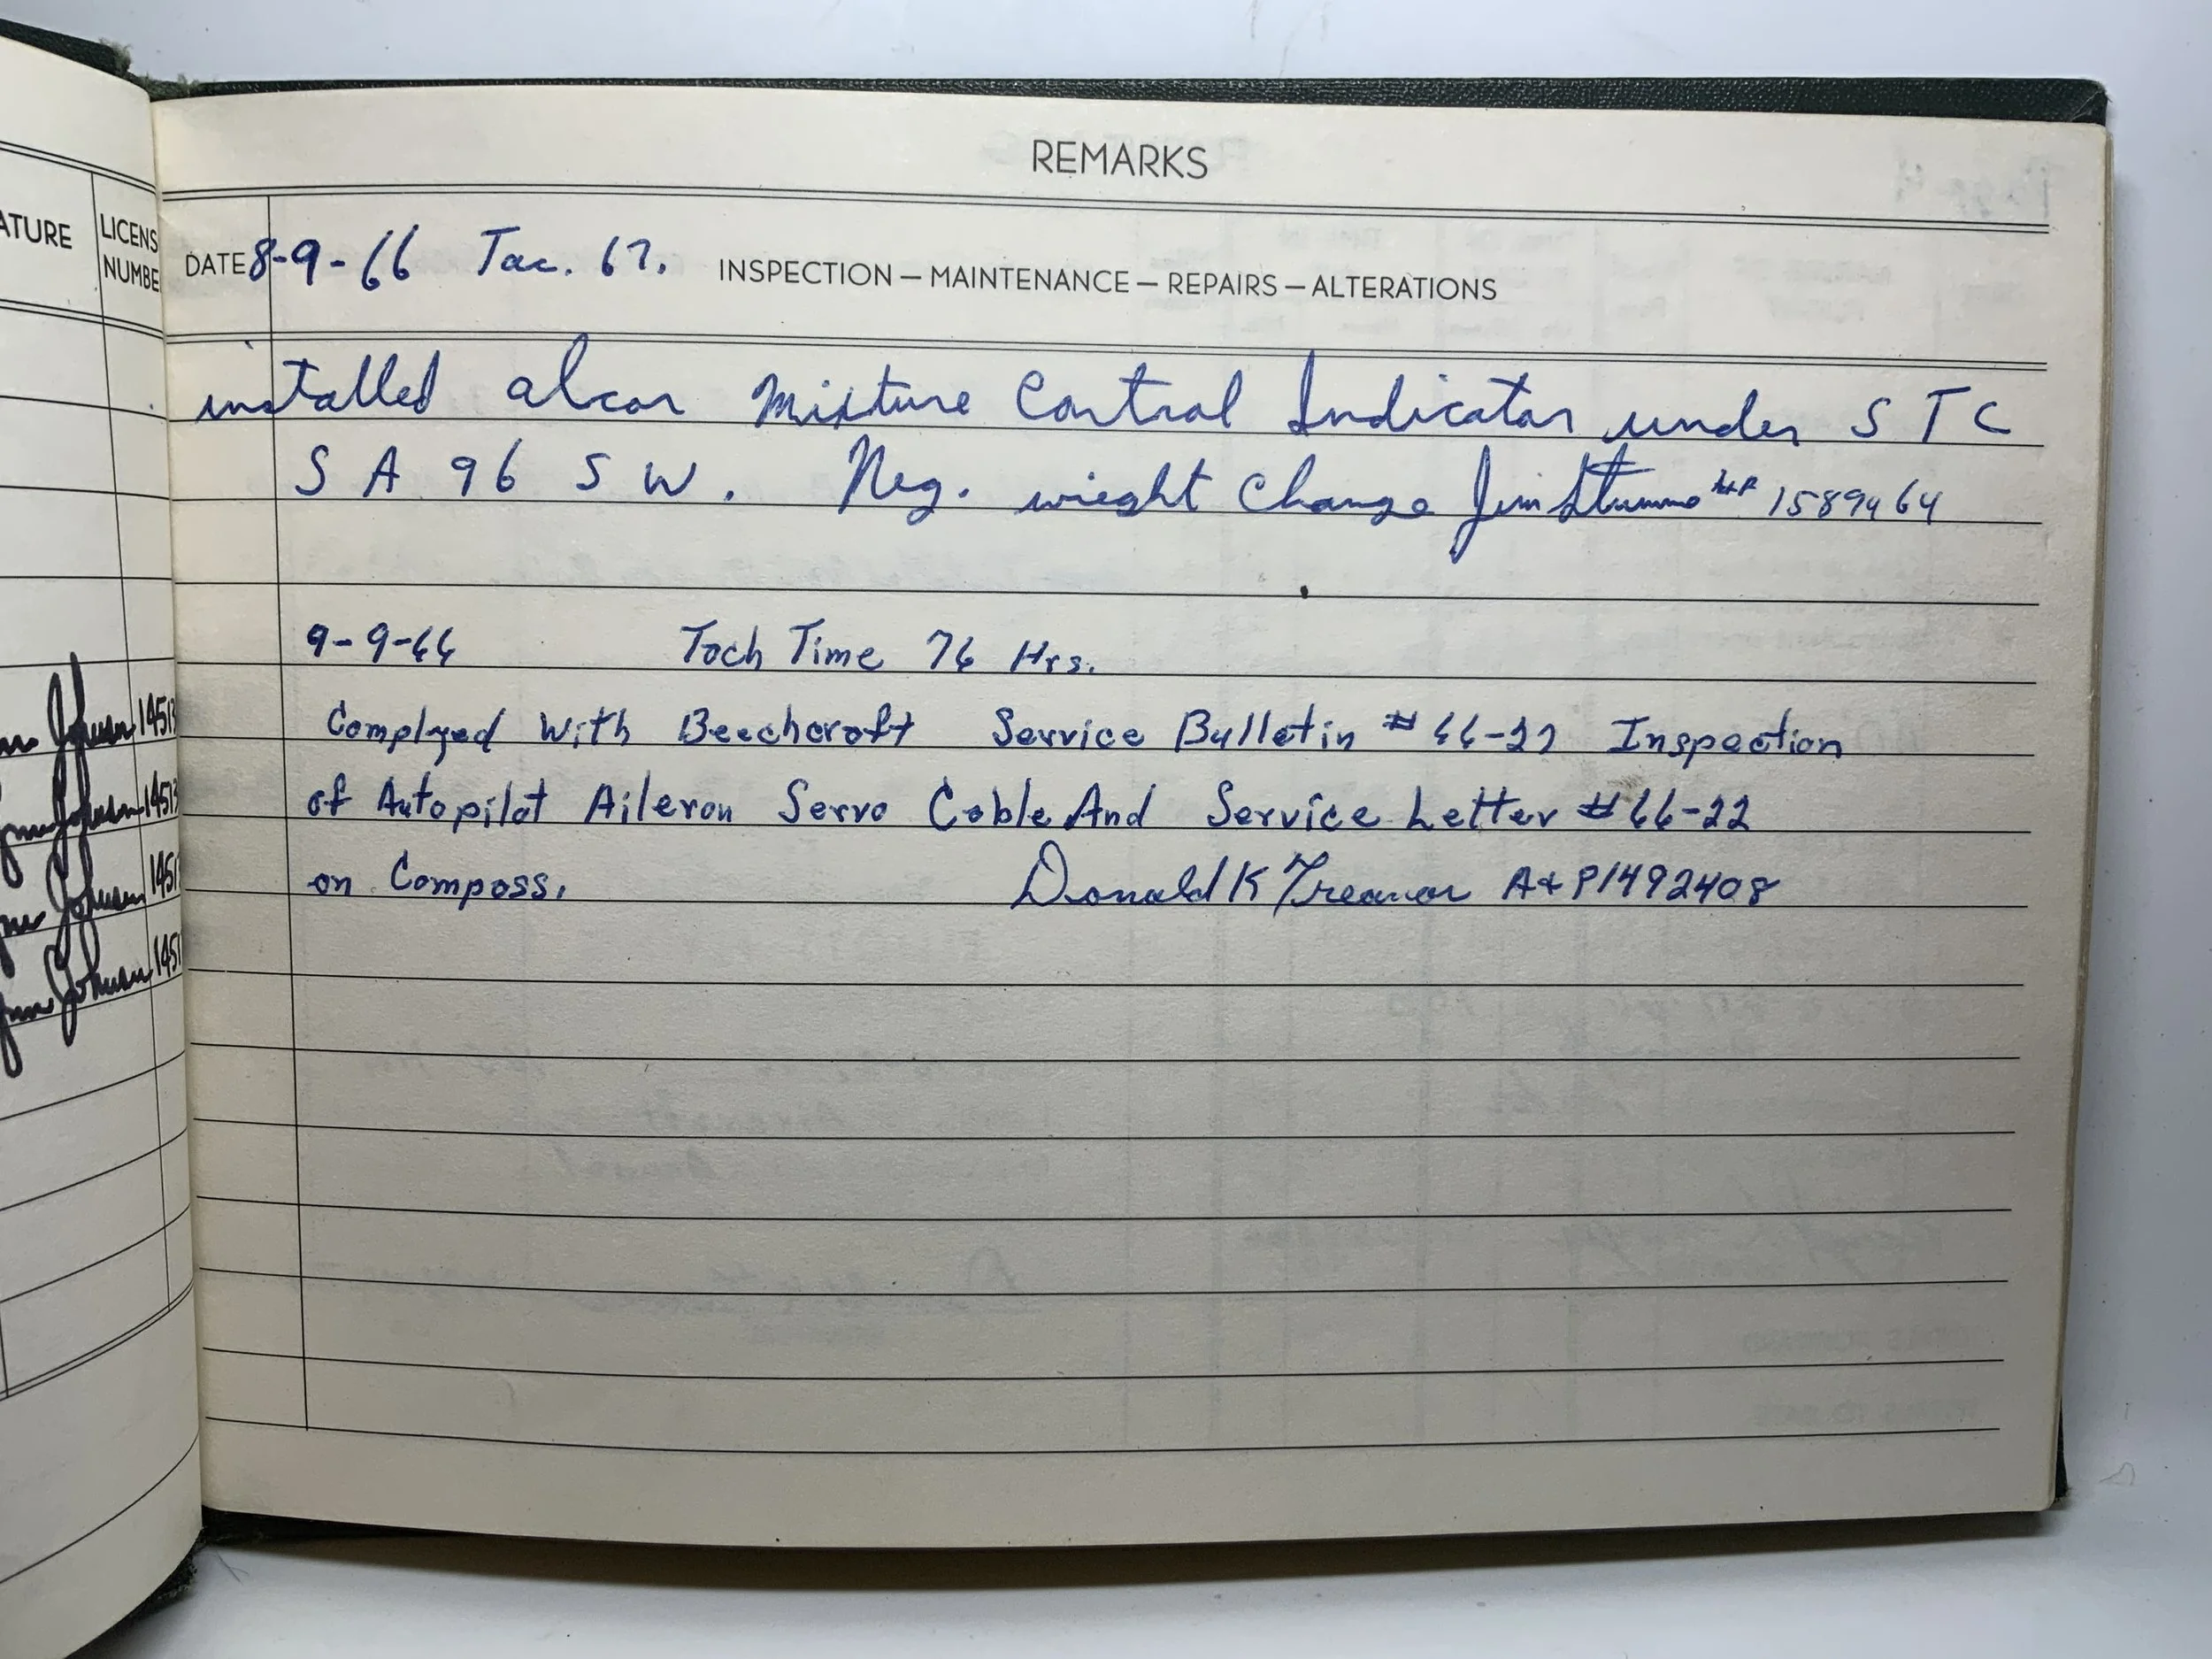 REMARKS
ATURE
LICENS
NUMBE
DATE 8-9-66 Tac. 67. INSPECTION — MAINTENANCE — REPAIRS — ALTERATIONS
installed alcor Mixture Control Indicator under STC
SA 96 SW. Neg. wieght Change Jim 1589464
9-9-66 Tach Time 76 Hrs.
Complyed With Beechcraft Service Bulletin # 66-27 Inspection
of Autopilot Aileron Servo Cable And Service Letter # 66-22
on Compass. Donald K Treanor A&P 1492408
Johnson 1451
Johnson 1451
Johnson 1451
Johnson 1451